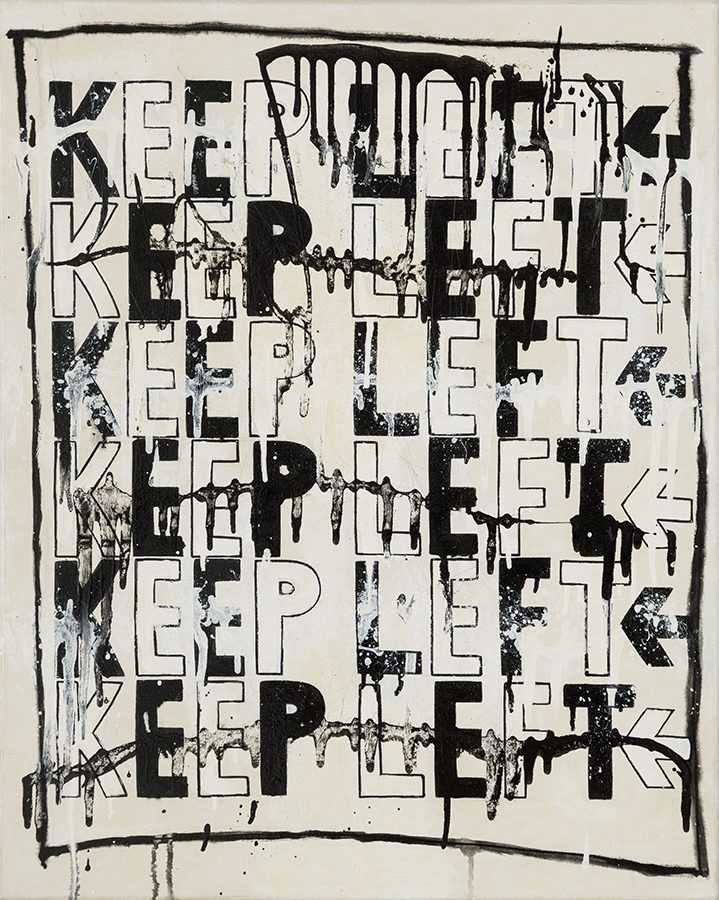 KEEP LEFT
KEEP LEFT
KEEP LEFT
KEEP LEFT
KEEP LEFT
KEEP LEFT